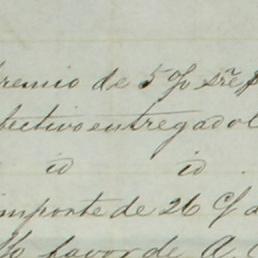 premio de 5 % sre
fectivo entregado
id id
importe de 26 C/ d
favor de A.